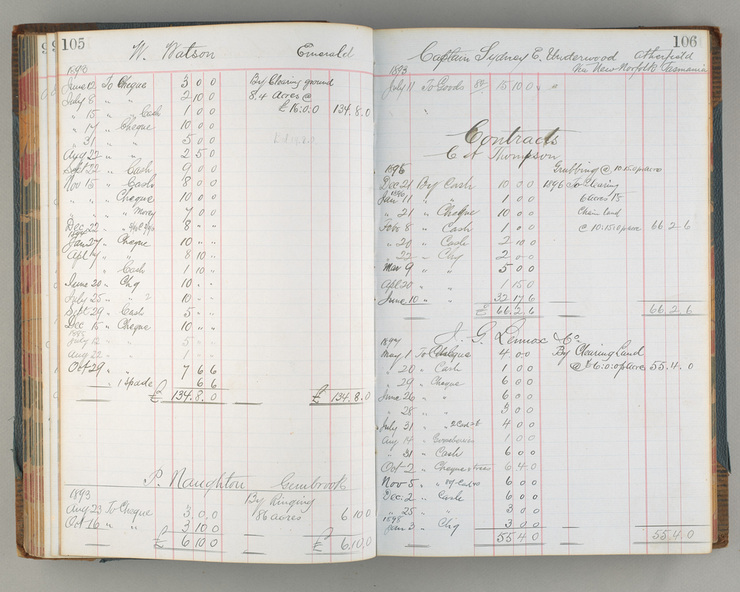 99 105
W. Watson Emerald
1893
June 10 To Cheque 3 0 0 By Clearing ground
July 8 " " 2 10 0 8.4 Acres @
" 15 " Cash 1 0 0 £16:0:0 134.8.0
" 17 " Cheque 10 0 0
" 31 " " 5 0 0
Aug 22 " " 2 5 0
Sept 22 " Cash 9 0 0
Nov 15 " Cash 8 0 0
" " " Cheque 10 0 0
" " " 7 0 0
Dec 22 " 8 " "
Jan 27 " Cheque 10 " "
Apl " " 8 10 "
" Cash 1 10 "
June 20 " Chq 10 " "
July 25 " " 10 " "
Sept 29 " Cash 5 " "
Dec 15 " Cheque 10 " "
1895
July 12 " 5 " "
Aug 22 " 1 " "
Oct 29 " 7 6 6
" 1 Spade 6 6
£ 134.8.0 £ 134.8.0
P. Naughton Gembrook
1893 By Ringing
Aug 23 To Cheque 3 0 0 86 acres 6 10 0
Oct 16 " " 3 10 0
£ 6 10 0 £ 6.10.0
106
Captain Sydney E. Underwood Atherfield
Via New Norfolk Tasmania
1893
July 11 To Goods 15 10 0 " "
Contracts
C A Thompson
1895 Grubbing @ 10.15.0 p acre
Dec 21 By Cash 10 0 0 1896 To Clearing
1896
Jan 11 " " 1 0 0 6 Acres
" 21 " Cheque 10 0 0 Chain land
Feby 8 " Cash 1 0 0 @ 10:15:0 p acre 66.2.6
" 20 " Cash 2 10 0
" 22 " Chq 2 0 0
Mar 9 " " 5 0 0
Apl 20 " " 1 15 0
June 10 " " 32.17.6
66.2.6 66.2.6
J. G. Lennox & Co
1897
May 1 To Cheque 4 0 0 By Clearing Land
" 20 " Cash 1 0 0 @ £6:0:0 p acre 55.4.0
" 29 " Cheque 6 0 0
June 26 " " 6 0 0
" 28 " " 3 0 0
July 31 " 4 0 0
Aug 14 " 1 0 0
" 31 " Cash 6 0 0
Oct 2 " 6 4 0
Nov 5 " 6 0 0
Dec 2 " Cash 6 0 0
" 25 " " 3 0 0
1898
Jan 3 " Chq 3 0 0
55 4 0 55.4.0